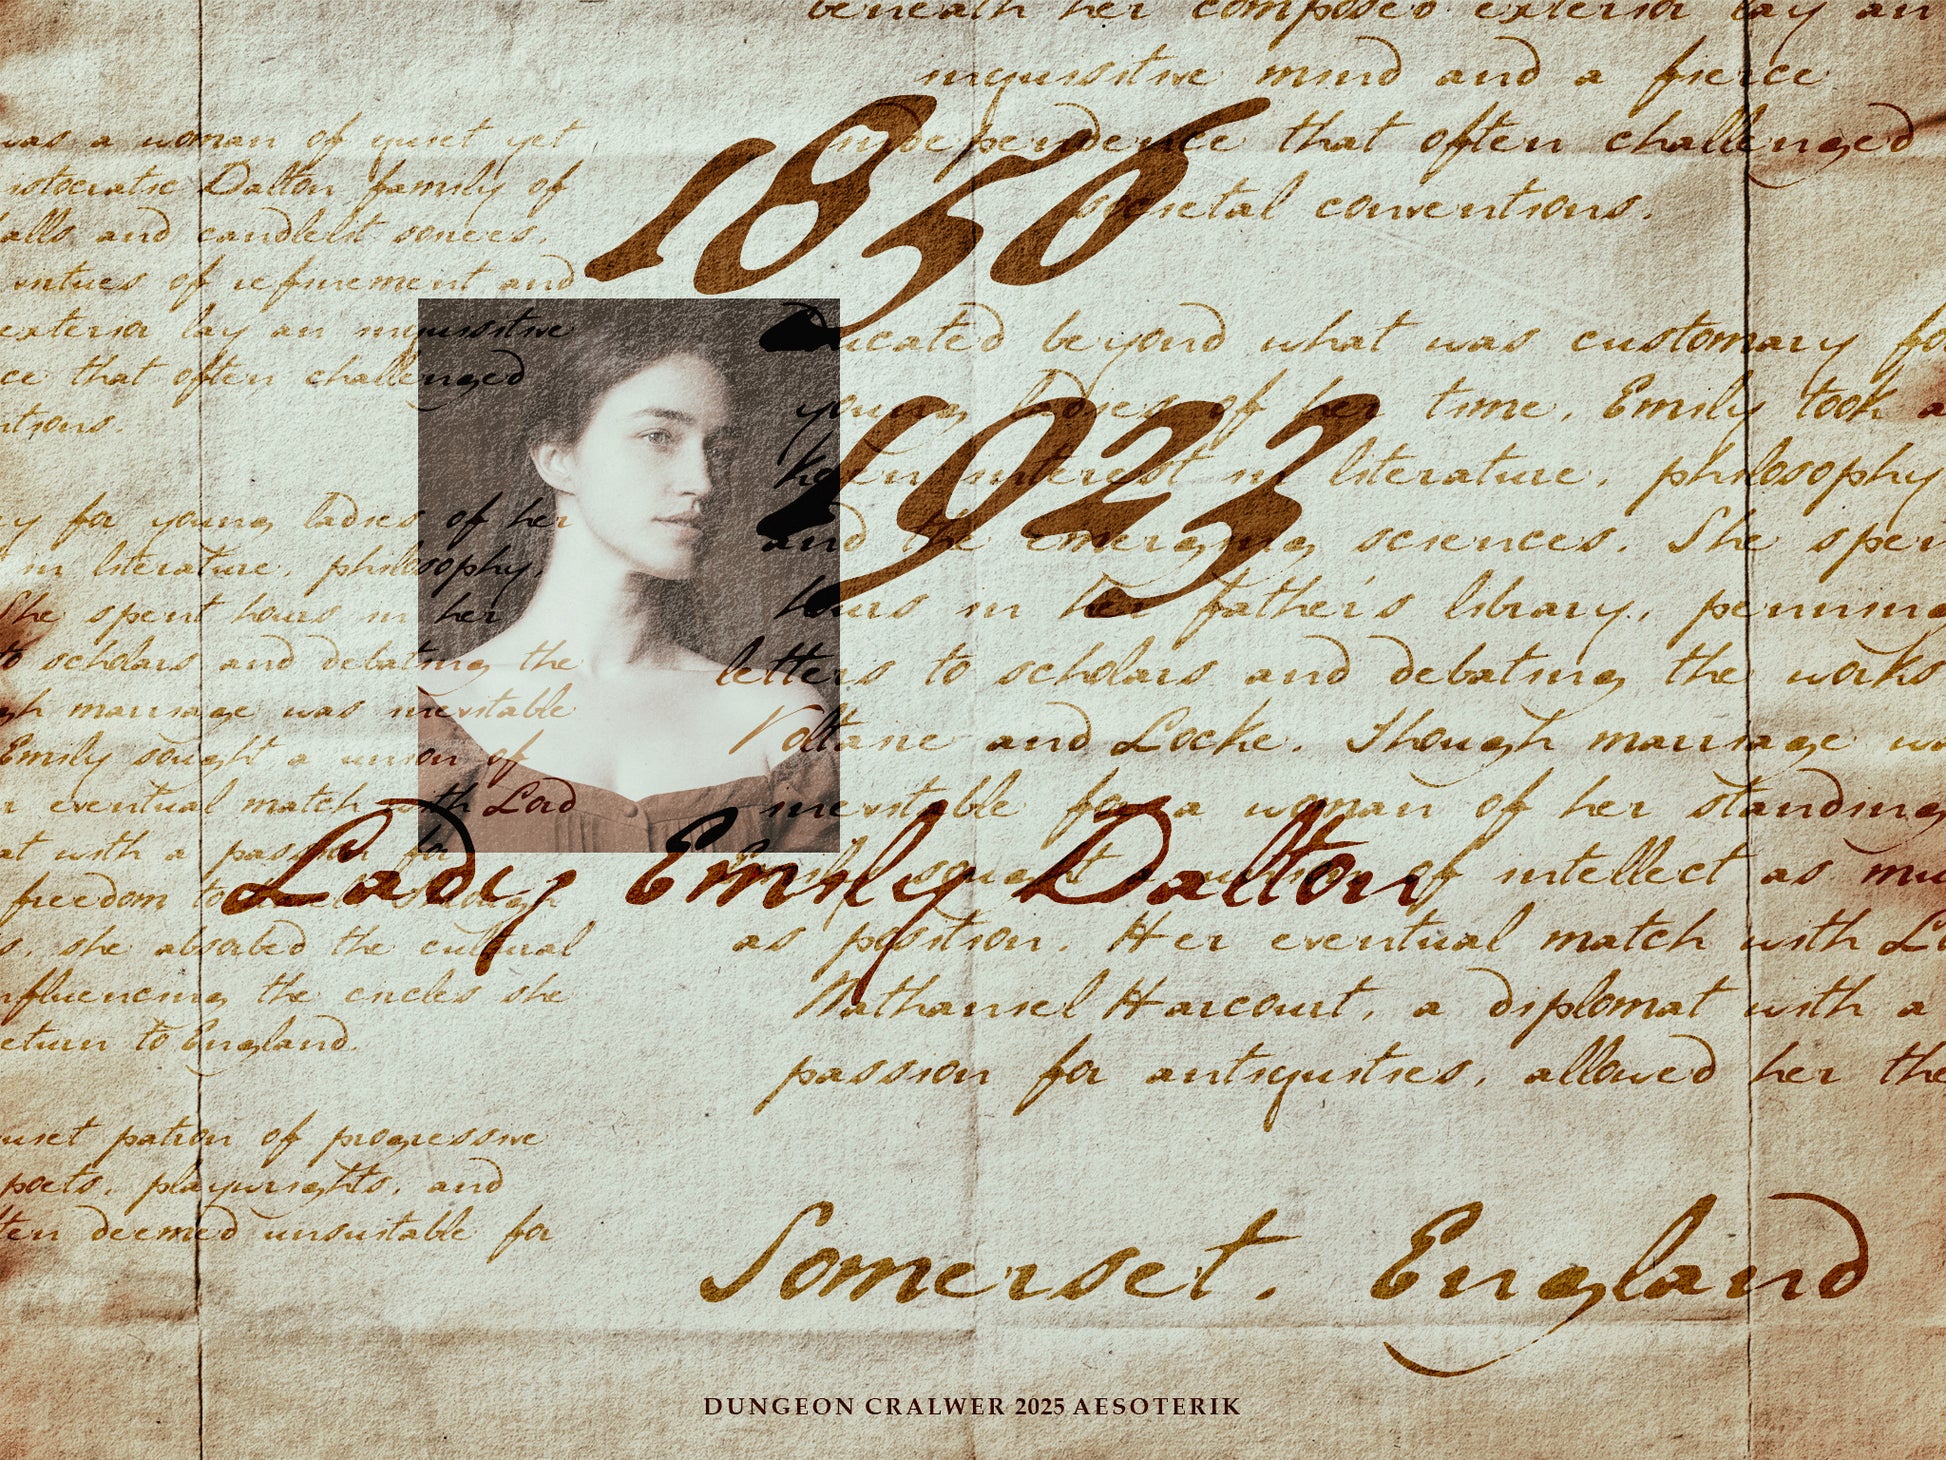 beneath her composed exterior lay an
inquisitive mind and a fierce
independence that often challenged
societal conventions.
1856
Educated beyond what was customary fo
young ladies of her time, Emily took a
keen interest in literature, philosophy
and the emerging sciences. She spen
hours in her father's library, penning
letters to scholars and debating the works
Voltaire and Locke. Though marriage wa
inevitable for a woman of her standing
Emily sought a union of intellect as mu
as position. Her eventual match with Lo
Nathaniel Harcourt, a diplomat with a
passion for antiquities, allowed her the
1923
was a woman of quiet yet
istocratic Dalton family of
alls and candlelit soirees.
virtues of refinement and
exterior lay an inquisitive
ce that often challenged
ntions.
ry for young ladies of her
in literature, philosophy,
She spent hours in her
to scholars and debating the
gh marriage was inevitable
Emily sought a union of
r eventual match with Lord
at with a passion for
freedom to travel. Through
s, she absorbed the cultural
nfluencing the circles she
eturn to England.
uiet patron of progressive
poets, playwrights, and
ten deemed unsuitable for
Lady Emily Dalton
Somerset, England
DUNGEON CRALWER 2025 AESOTERIK